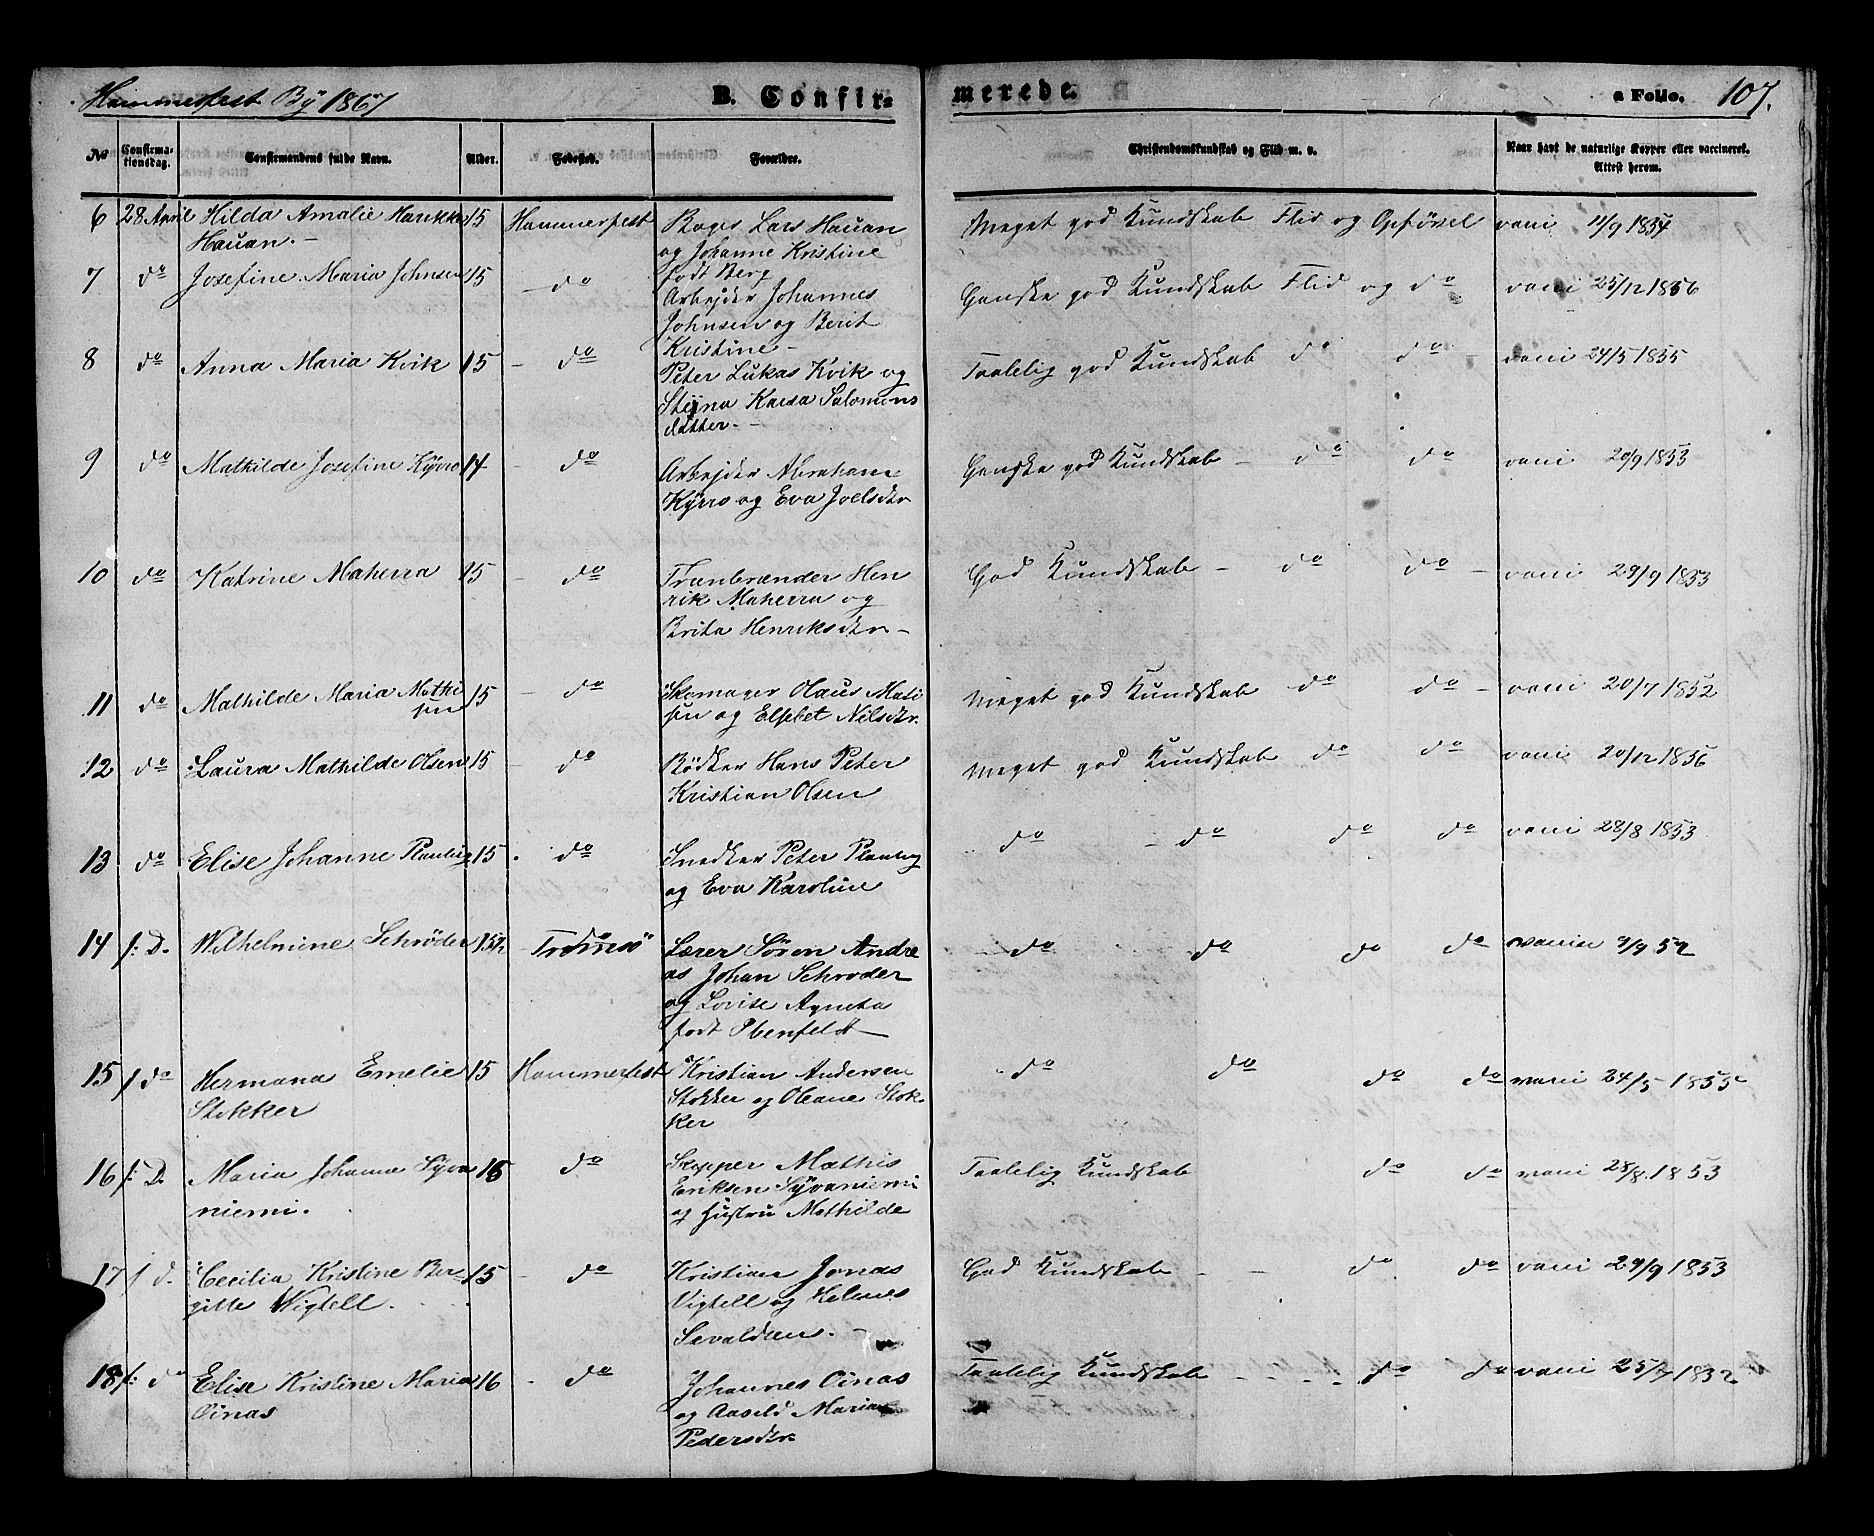 Hammerfest By 1867
B. Confirmerede.
a Folio. 107.
No Confirmationsdag. Confirmandens fulde Navn. Alder. Fødested. Forældre. Christendomskundskab og Flid m. v. Naar havt de naturlige Kopper eller vaccineret. Attest herom.
6 28 April Hilda Amalie Harikke 15 Hammerfest Bager Lars Hauan Meget god Kundskab Flid og Opførsel vacc 11/9 1854
Hauan. - og Johanne Kristine
født Berg
7 do Josefine Maria Johnsen 15 - do Arbejder Johannes Ganske god Kundskab Flid og do vacc 25/12 1856
Johnsen og Berit
Kristine -
8 do Anna Maria Kvik 15 - do Peter Lukas Kvik og Taalelig god Kundskab do do - vacc 24/5 1855
Stina Kaisa Salomons
datter. -
9 do Mathilde Josefine Kyrro 14 - do Arbejder Abraham Ganske god Kundskab - do do vacc 20/9 1853
Kyrro og Eva Joelsdtr
10 do Katrine Maherra 15 - do Tranbrænder Hen God Kundskab - do do - vacc 29/9 1853
rik Maherra og
Brita Henriksdtr -
11 do Mathilde Maria Mathi 15 - do Skomager Olaus Mati Meget god Kundskab do do - vacc 20/7 1852
sen sen og Elsebet Nilsdtr.
12 do Laura Mathilde Olsen 15 - do Bødker Hans Peter Meget god Kundskab do do vacc 20/12 1856
Kristian Olsen
13 do Elise Johanne Planting 15 - do Snedker Peter Planting do - do do do vacc 28/8 1853
og Eva Karoline
14 f: D. Wilhelmine Schrøder 15½ - Tromsö Lærer Søren Andre - do do do do vacc 9/9 52
as Johan Schrøder
og Lovise Agneta
født Ebenfeldt
15 f do Hermana Emelie 15 Hammerfest Kristian Andersen do do do do vacc 24/5 1855
Stokker Stokker og Oleane Stok-
ker
16 f: D. Maria Johanna Syva 16 do Skipper Mathis Taalelig Kundskab do do vacc 28/8 1853
niemi. Eriksen Syvaniemi
og Hustru Mathilde
17 f d. Cecilia Kristine Ber- 15 - do Kristian Jonas God Kundskab - - do do vacc 29/9 1853
gitte Wigtell. Vigtell og Helene
Sevaldsen. -
18 f: do Elise Kristine Maria 16 - do Johannes Oinas Taalelig Kundskab - - do do vacc 25/7 1852
Oinas og Aasild Maria
Pedersdtr